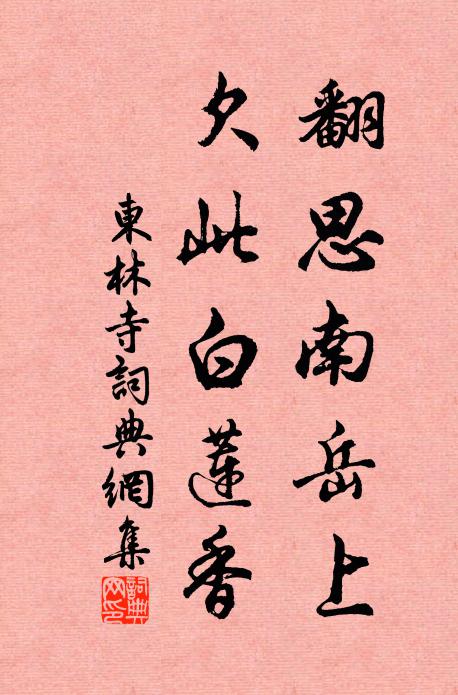 翻思南岳上
欠此白蓮香
東林寺詞典網集
詞典網印